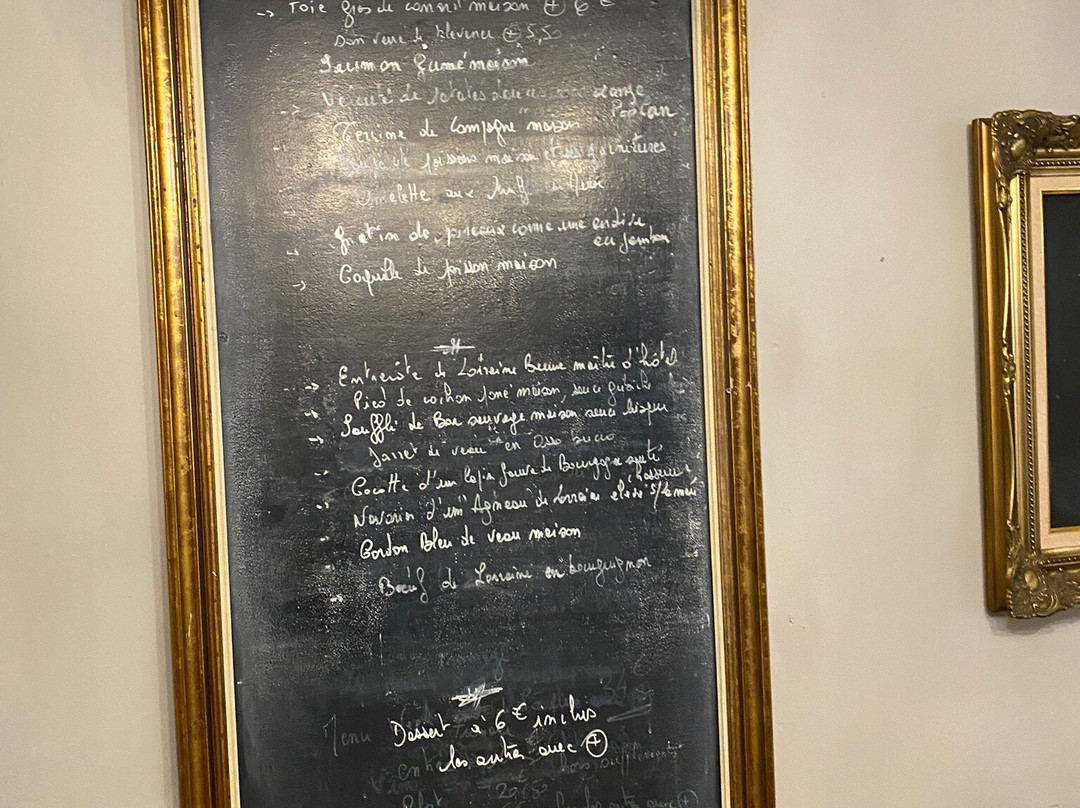 → Foie gras de connil maison ⊕ 6 €
Son verre de Klevener ⊕ 5,50
Saumon fumé maison
→ Velouté de patates douces orange
Potiron
Terrine de Campagne maison
Soupe de poissons maison et ses garnitures
Omelette aux
→ Gratin de poireaux comme une endive
au jambon
→ Coquille de poisson maison
→ Entrecôte de Lorraine Beurre maître d'hôtel
Pied de cochon pané maison, sauce gribiche
→ Soufflé de Bar sauvage maison sauce
Jarret de veau en Osso bucco
Cocotte d'un lapin fauve de Bourgogne sauté
chasseur
Navarin d'un Agneau de Lorraine élevé s/ la mère
Cordon Bleu de veau maison
→ Bœuf de Lorraine en bourguignon
Menu
Dessert à 6 € inclus
les autres avec ⊕